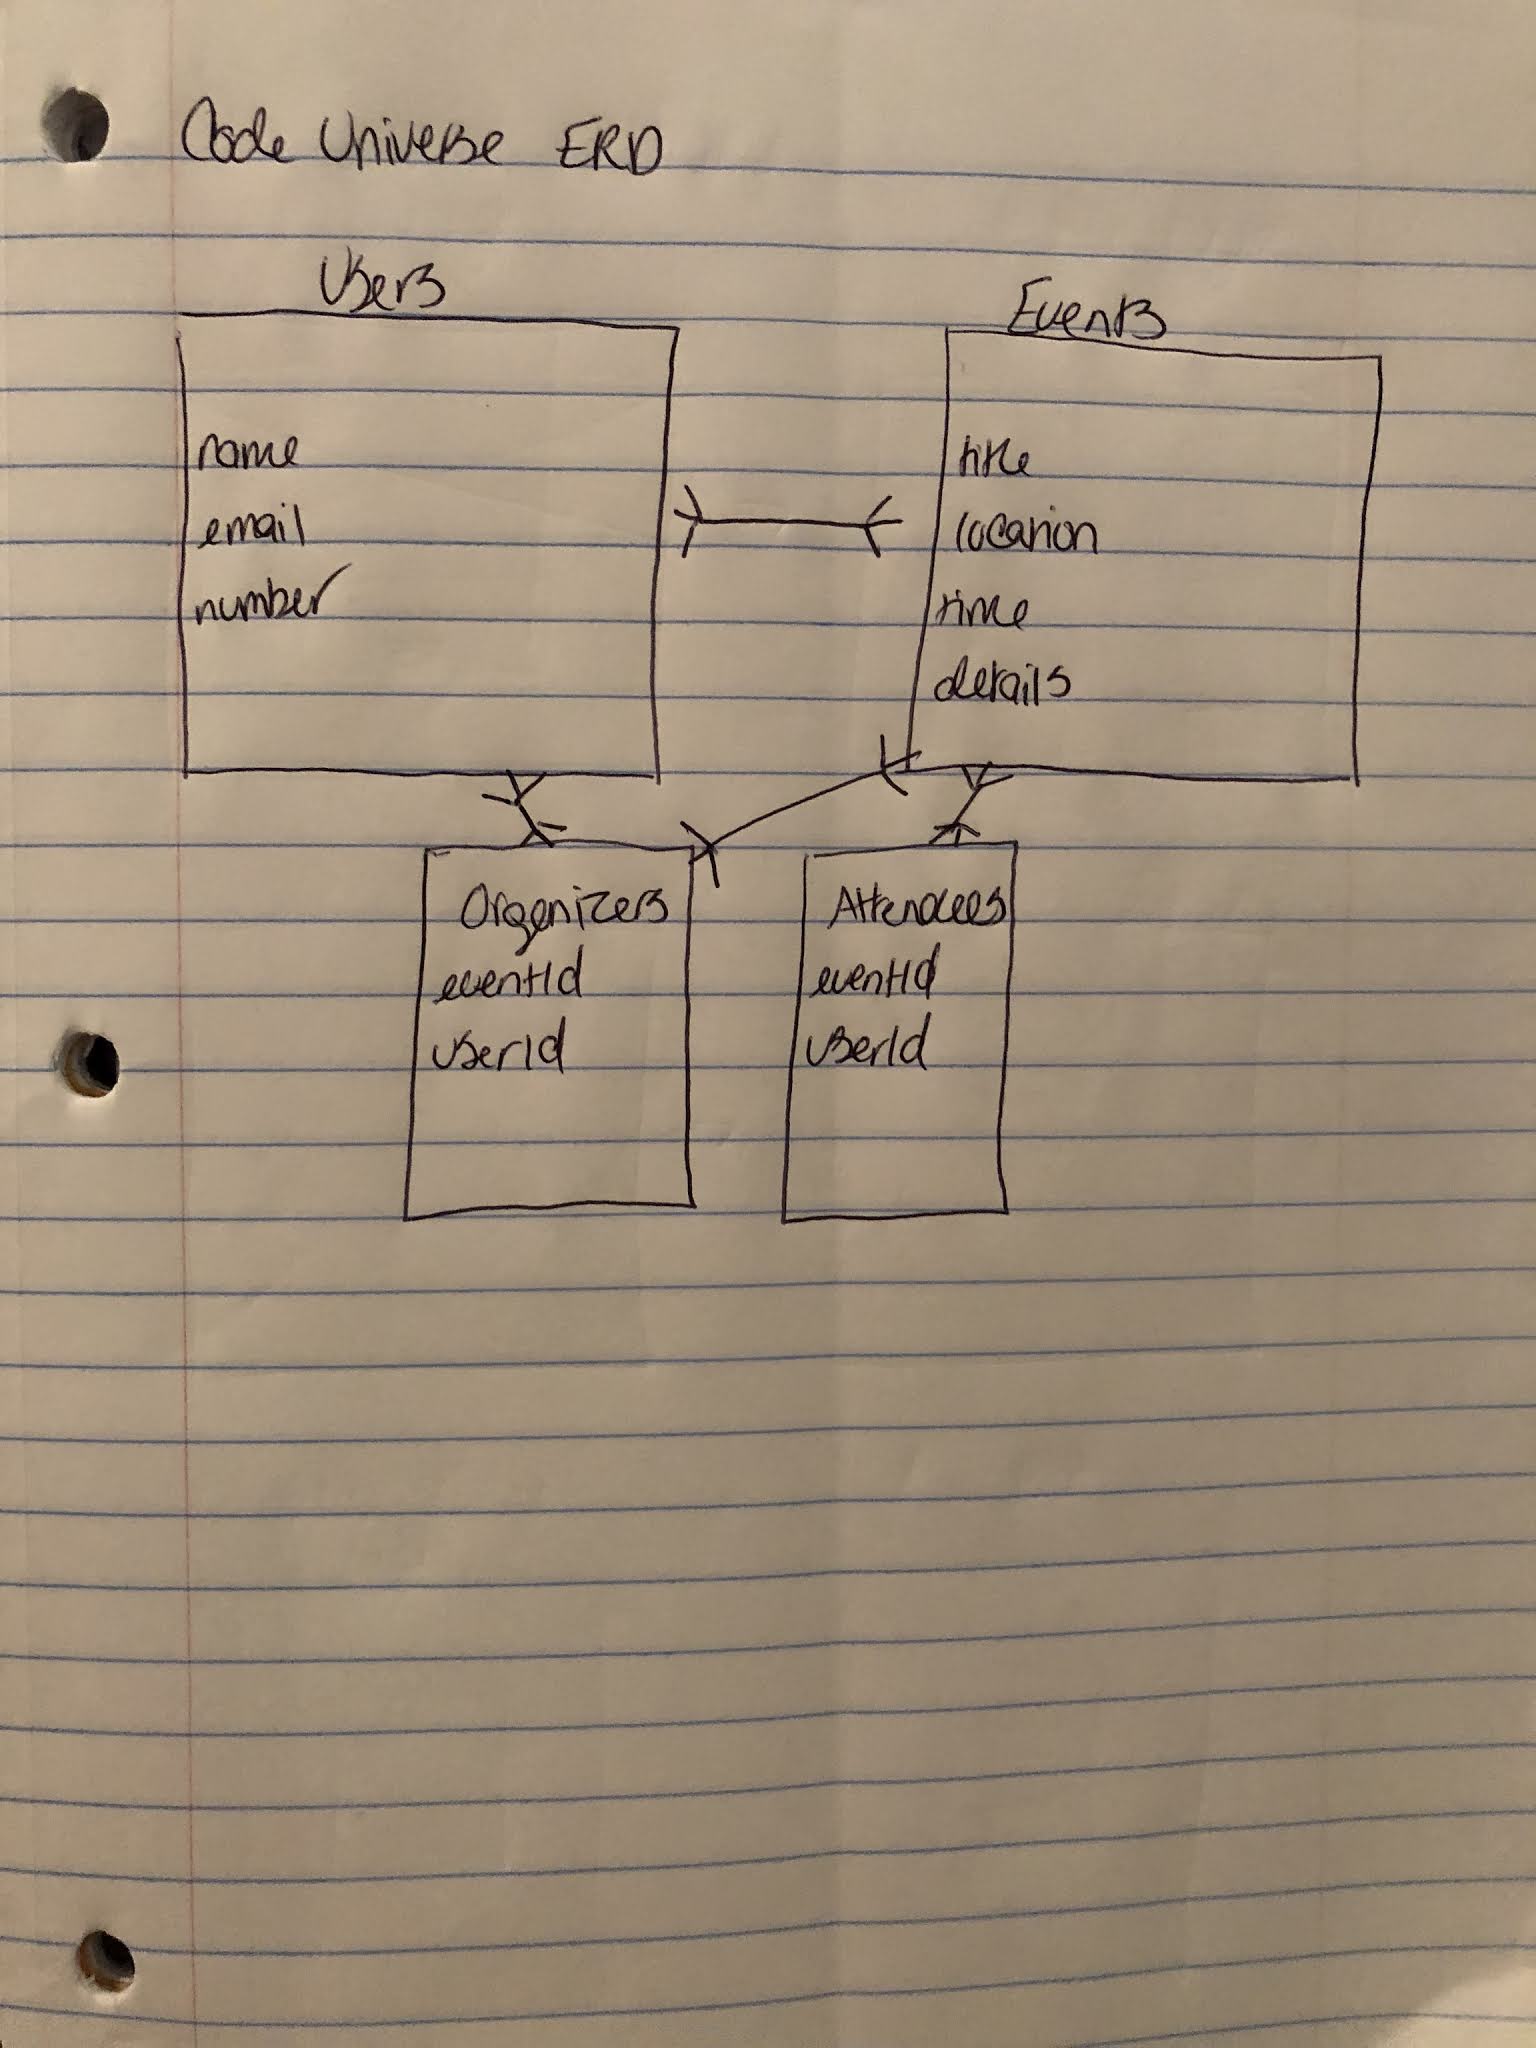 Code Universe ERD
Users
name
email
number
Events
title
location
time
details
Organizers
eventId
userId
Attendees
eventId
userId